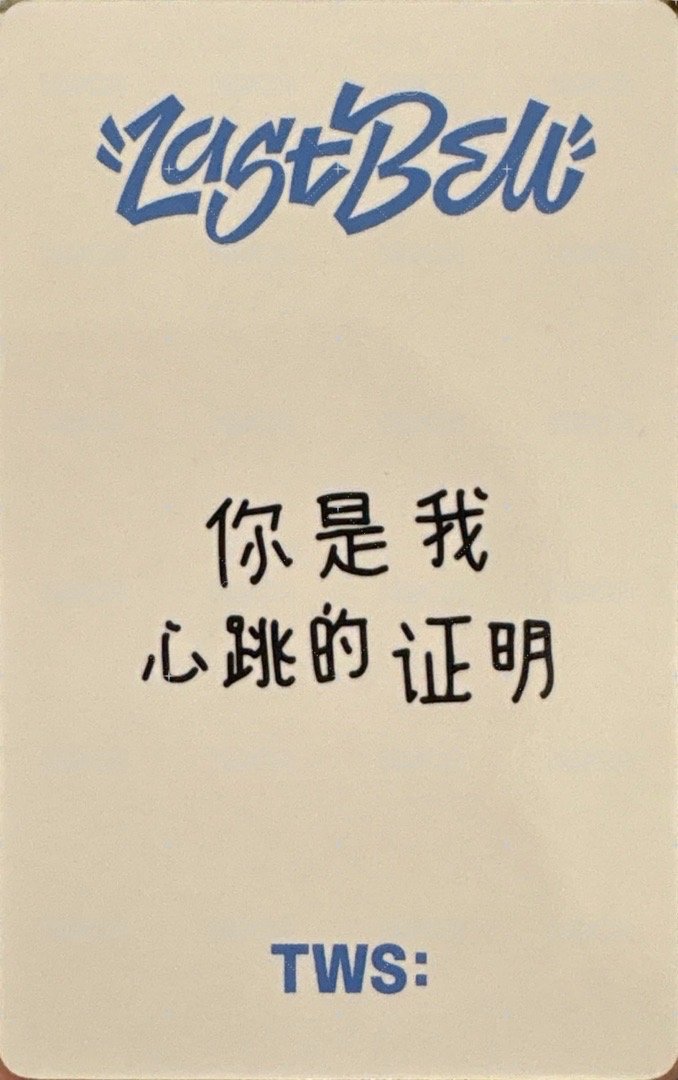 Last Bell
你是我
心跳的证明
TWS: